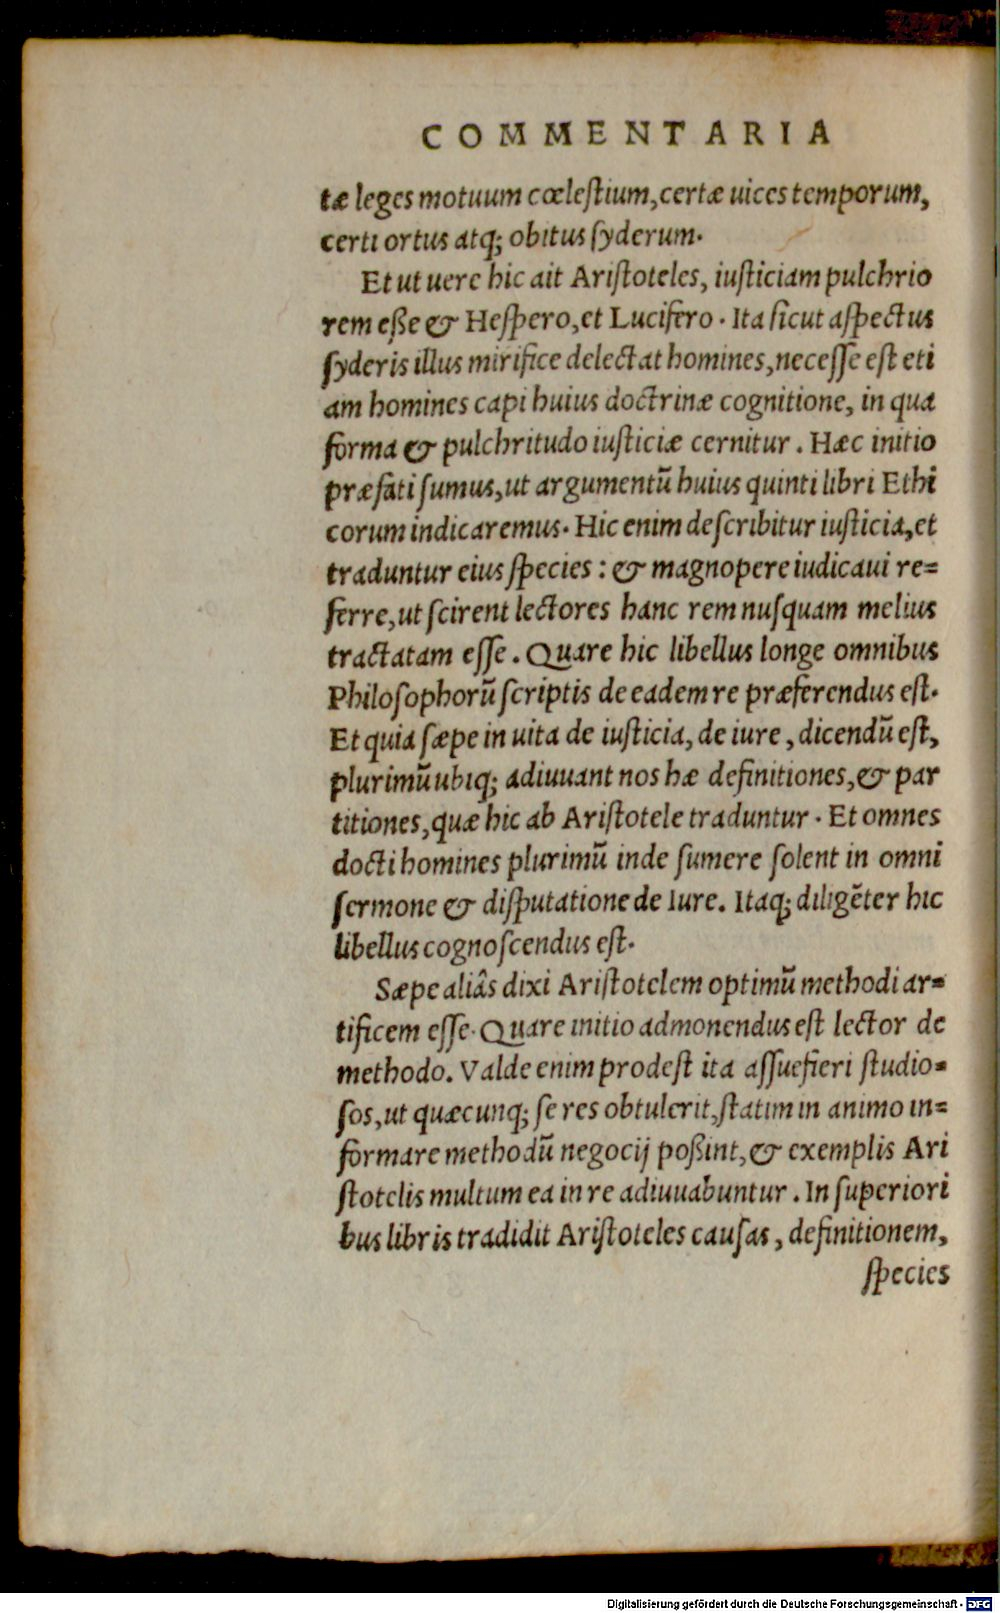 COMMENTARIA
tæ leges motuum cœleſtium, certæ uices temporum,
certi ortus atq; obitus ſyderum.
Et ut uere hic ait Ariſtoteles, iuſticiam pulchrio
rem eße & Heſpero, et Lucifero. Ita ſicut aſpectus
ſyderis illus mirifice delectat homines, neceſſe eſt eti
am homines capi huius doctrinæ cognitione, in qua
forma & pulchritudo iuſticiæ cernitur. Hæc initio
præfati ſumus, ut argumentū huius quinti libri Ethi
corum indicaremus. Hic enim deſcribitur iuſticia, et
traduntur eius ſpecies: & magnopere iudicaui re=
ferre, ut ſcirent lectores hanc rem nuſquam melius
tractatam eſſe. Quare hic libellus longe omnibus
Philoſophorū ſcriptis de eadem re præferendus eſt.
Et quia ſæpe in uita de iuſticia, de iure, dicendū eſt,
plurimū ubiq; adiuuant nos hæ definitiones, & par
titiones, quæ hic ab Ariſtotele traduntur. Et omnes
docti homines plurimū inde ſumere ſolent in omni
ſermone & diſputatione de Iure. Itaq; diligēter hic
libellus cognoſcendus eſt.
Sæpe aliâs dixi Ariſtotelem optimū methodi ar=
tificem eſſe. Quare initio admonendus eſt lector de
methodo. Valde enim prodeſt ita aſſuefieri ſtudio=
ſos, ut quæcunq; ſe res obtulerit, ſtatim in animo in=
formare methodū negocij poßint, & exemplis Ari
ſtotelis multum ea in re adiuuabuntur. In ſuperiori
bus libris tradidit Ariſtoteles cauſas, definitionem,
ſpecies
Digitalisierung gefördert durch die Deutsche Forschungsgemeinschaft - DFG